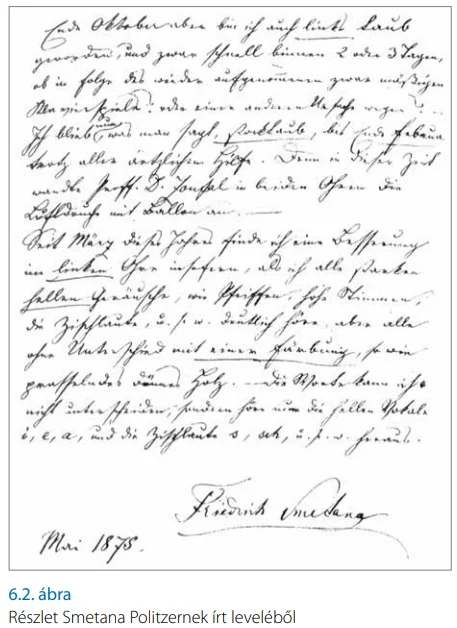 Ende Oktober aber bin ich auch links taub
geworden, und zwar schnell binnen 2 oder 3 Tagen,
ob in Folge des wieder aufgenommenen zwar mäßigen
Klavierspiels? oder einer anderen Ursache wegen?
Ich blieb nun, was man sagt, stocktaub, bis Ende Februar
trotz aller ärztlichen Hilfe. Denn in dieser Zeit
wandte Proff. D. in beiden Ohren die
Luftdouche mit Ballon an. —
Seit März dieses Jahres finde ich eine Besserung
im linken Ohre insofern, als ich alle starken
hellen Geräusche, wie Pfeiffen, hohe Stimmen,
die Zischlaute, u. s. w. deutlich höre, aber alle
ohne Unterschied mit einer Färbung, so wie
prasselndes dünnes Holz. — Die Worte kann ich
nicht unterscheiden, sondern höre nur die hellen Vokale
i, e, a, und die Zischlaute s, sch, u. s. w. heraus.
Friedrich Smetana
Mai 1875.
6.2. ábra
Részlet Smetana Politzernek írt leveléből